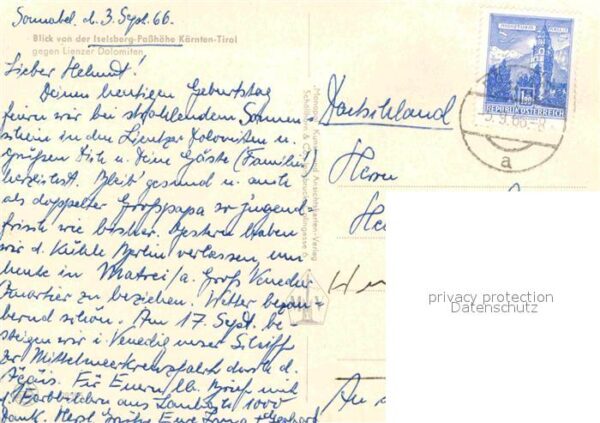 Sonnabel. d. 3. Sept. 66.
Blick von der Iselsberg-Paßhöhe Kärnten-Tirol
gegen Lienzer Dolomiten
Lieber Helmut!
Deinen heutigen Geburtstag
feiern wir bei strahlendem Sonnen-
schein in den Lienzer Dolomiten u.
grüßen Dich u. Deine Gäste (Familie!)
herzlichst. Bleib' gesund u. amte
als doppelter Großpapa so jugend-
frisch wie bisher. Gestern haben
wir d. kühle Berlin verlassen, um
heute in Matrei/a. Groß Venedi
Quartier zu beziehen. Wetter bezau-
bernd schön. Am 17. Sept. be
steigen wir i. Venedig unser Schiff
zur Mittelmeerkreuzfahrt durch d.
Ägäis. Für Euern lb. Brief mit
d. Farbbildern aus
1000
Dank. Herzl. Grüße Eure
+ Gerhard
Deutschland
Herrn
REPUBLIK ÖSTERREICH
-5.9.66-8
a
An d
privacy protection
Datenschutz